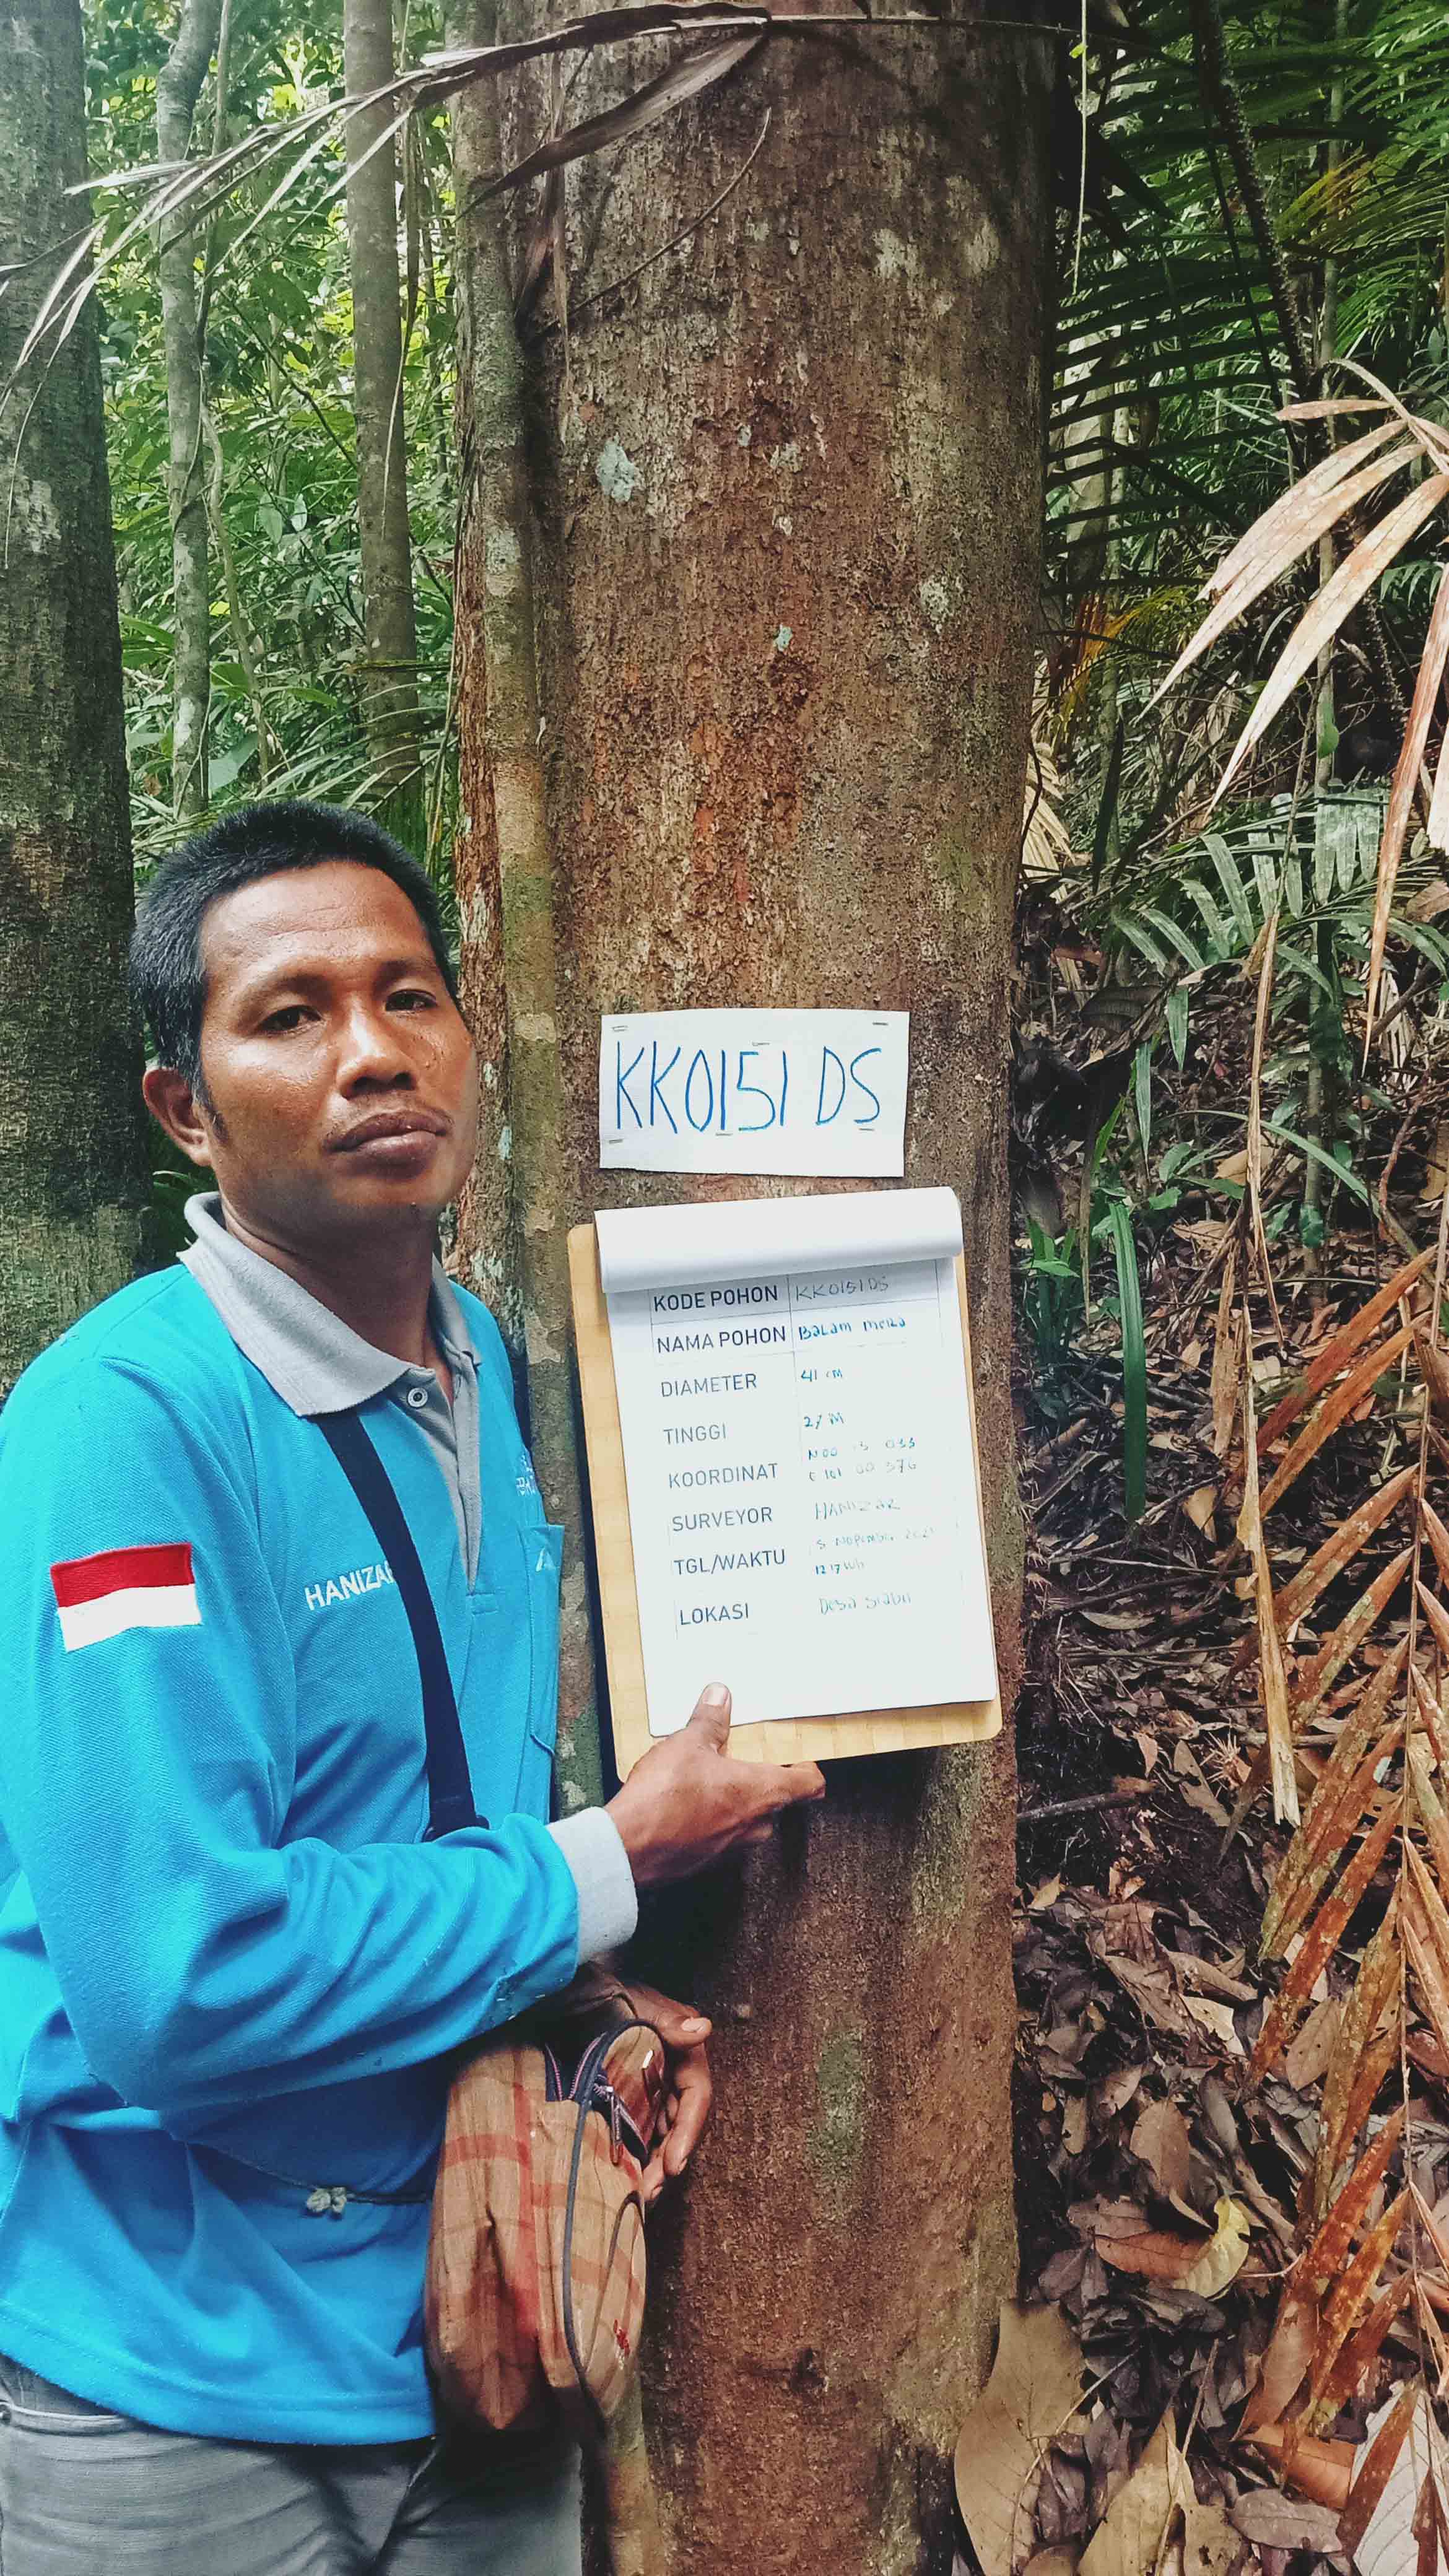 KK0151 DS
KODE POHON KK0151DS
NAMA POHON BaLam mera
DIAMETER 41 cm
TINGGI 27 M
KOORDINAT N00 033
E 101 00 376
SURVEYOR HANIZAR
TGL/WAKTU 5 NOPEMBER 2021
12 17 Wib
LOKASI Desa
HANIZAR